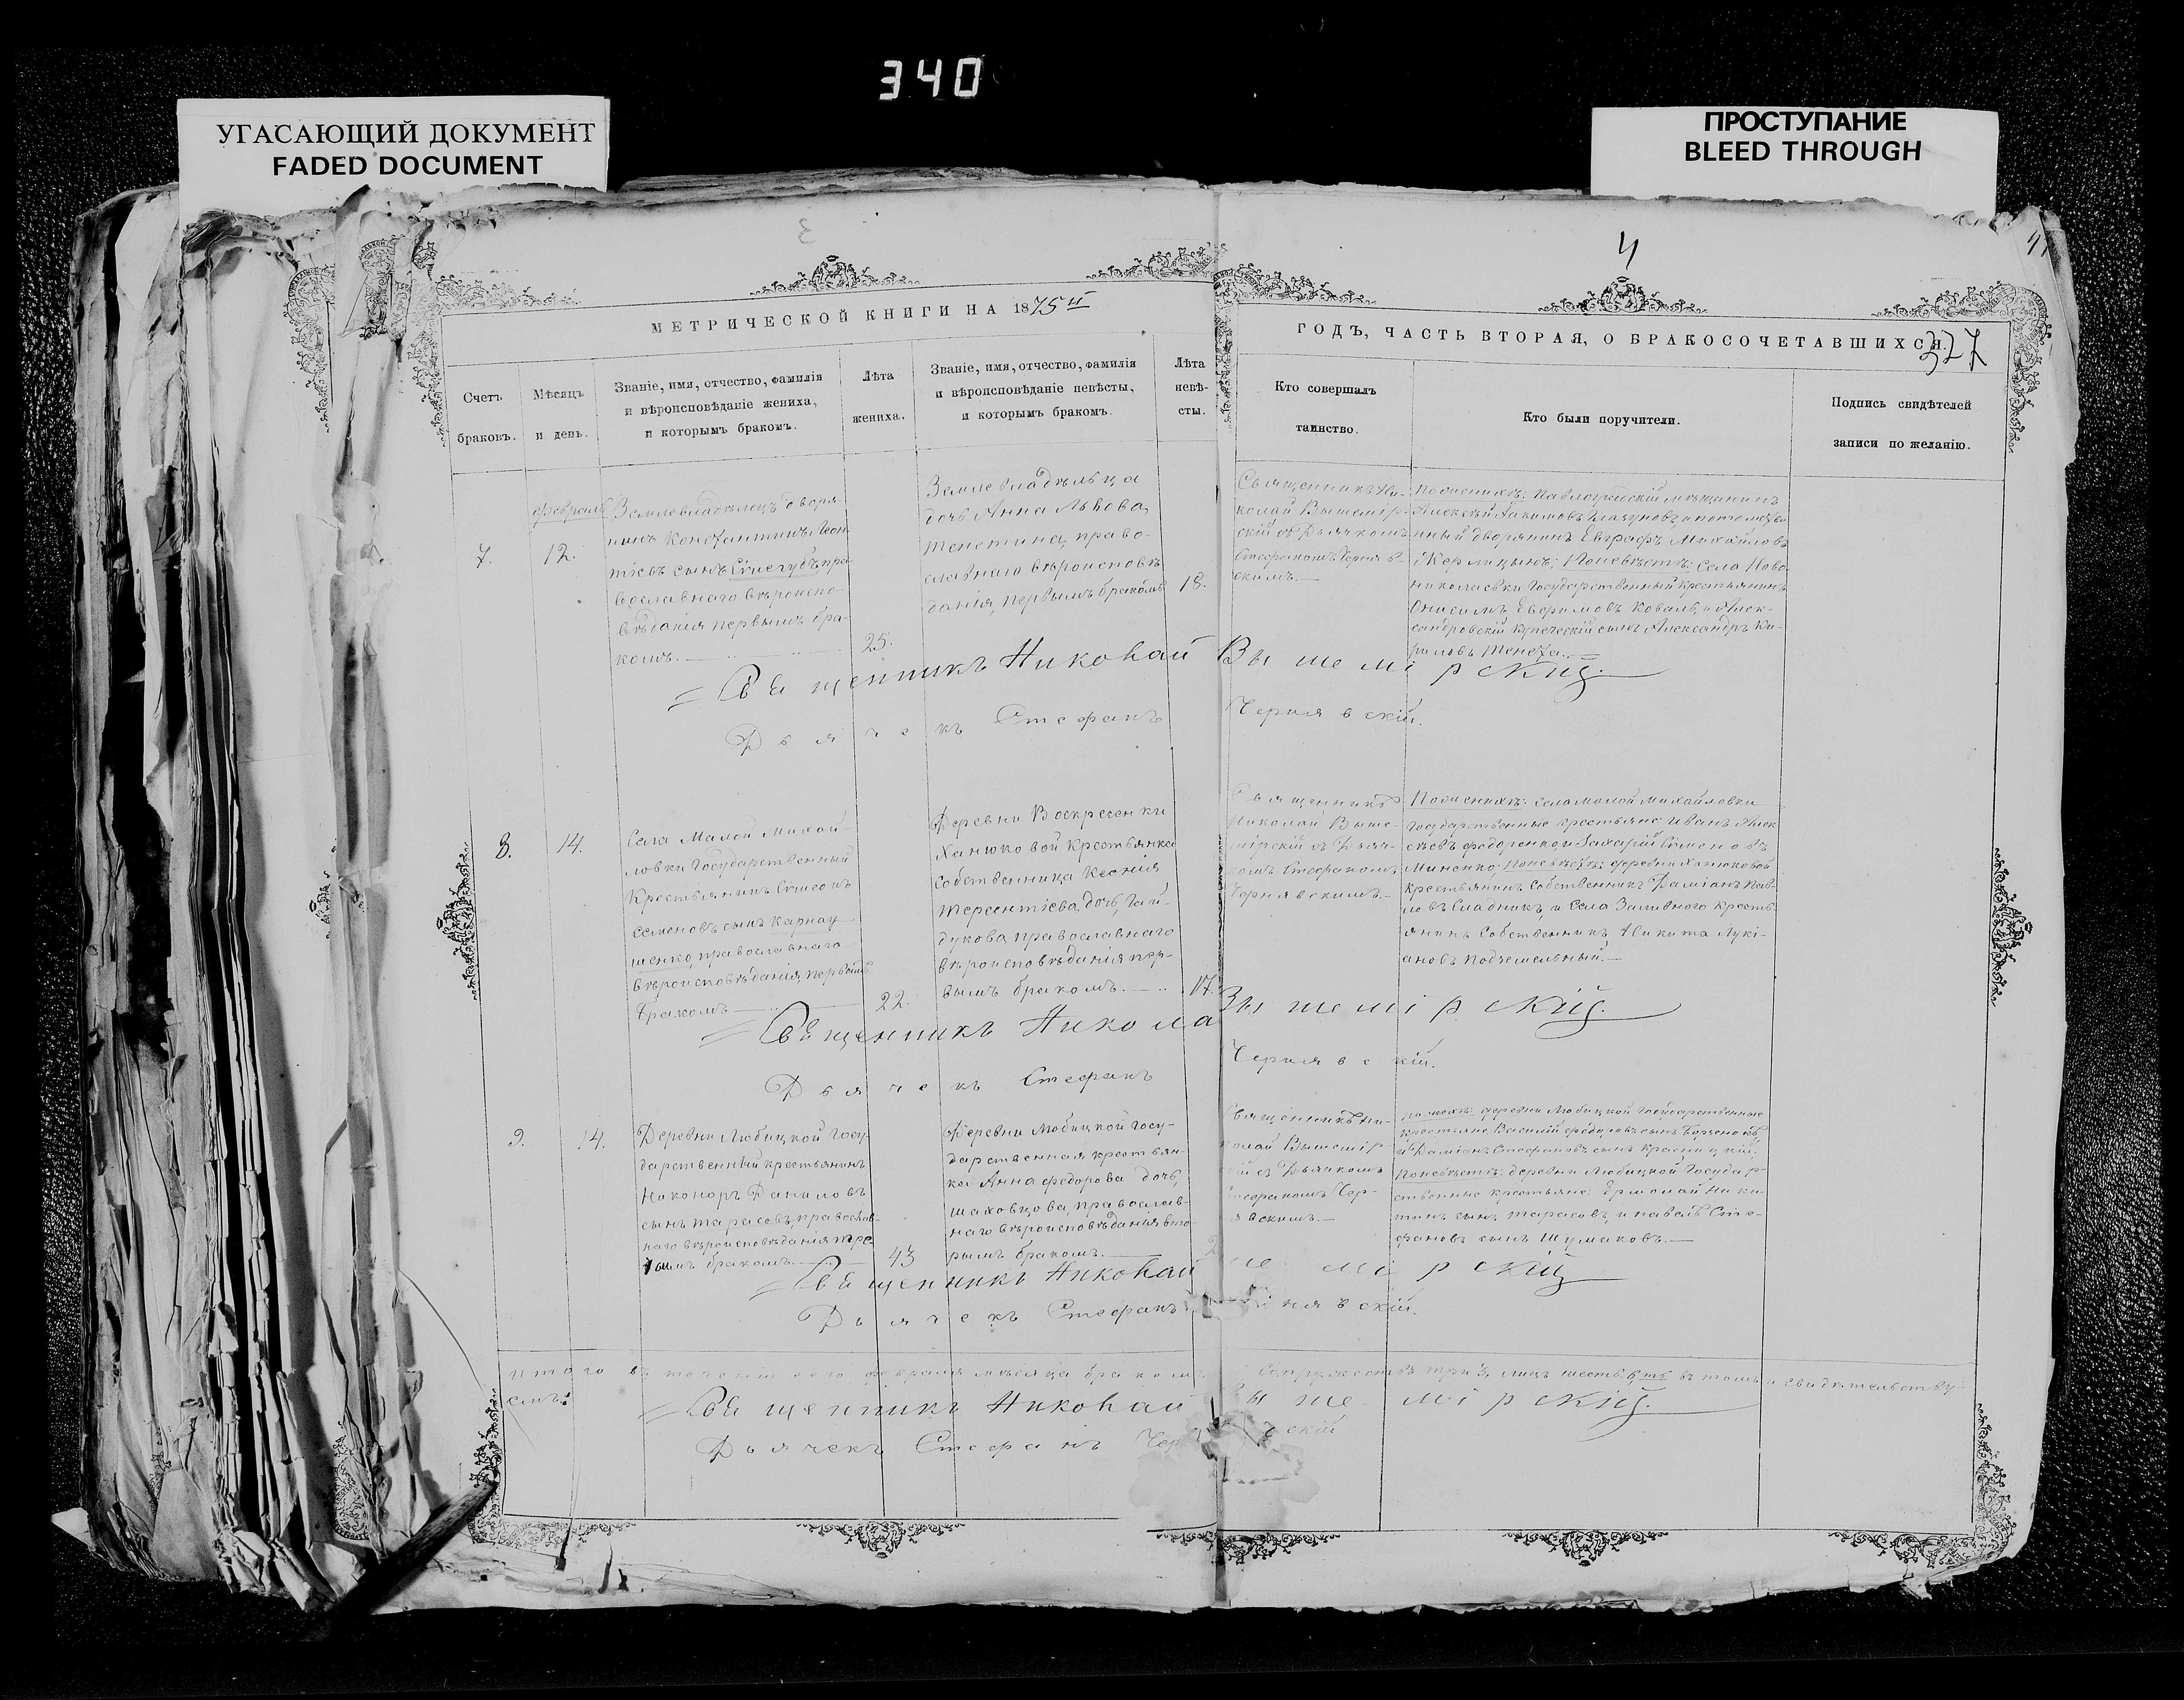 340
УГАСАЮЩИЙ ДОКУМЕНТ
FADED DOCUMENT
ПРОСТУПАНИЕ
BLEED THROUGH
4
МЕТРИЧЕСКОЙ КНИГИ НА 1875й
ГОДЪ, ЧАСТЬ ВТОРАЯ, О БРАКОСОЧЕТАВШИХСЯ.
327
Счетъ
браковъ.
Мѣсяцъ
и день.
Званіе, имя, отчество, фамилія
и вѣроисповѣданіе жениха,
и которымъ бракомъ.
Лѣта
жениха.
Званіе, имя, отчество, фамилія
и вѣроисповѣданіе невѣсты,
и которымъ бракомъ.
Лѣта
невѣ-
сты.
Кто совершалъ
таинство.
Кто были поручители.
Подпись свидѣтелей
записи по желанію.
7.
февраль
12.
Землевладѣлецъ дворя-
нинъ Константинъ Леон-
тіевъ сынъ Синегубъ, пра-
вославнаго вѣроиспо-
вѣданія первымъ бра-
комъ.
25.
Землевладѣльца
дочь Анна Львова
Тенетина, право-
славнаго вѣроисповѣ-
данія, первымъ бракомъ
18.
Священникъ Ни-
колай Вышемір-
скій съ Дьячкомъ
Стефаномъ Черняв-
скимъ.
По женихѣ: Павлоградскій мѣщанинъ
Алексѣй Іакимовъ Глазуновъ, и потомстве-
нный дворянинъ Евграфъ Михайловъ
По невѣстѣ: Села Ново-
николаевки Государственный крестьянинъ
Онисимъ Ефимовъ Коваль, и Алек-
сандровскій купеческій сынъ Александръ Ки-
риловъ Тенета.
Священникъ Николай Вышемірскій.
Дьячекъ Стефанъ Чернявскій.
8.
14.
Села Малой Михай-
ловки Государственный
Крестьянинъ Симеонъ
Семеновъ сынъ Карнау-
шенко, православнаго
вѣроисповѣданія, первымъ
бракомъ
22.
Деревни Воскресенки
Ханюковой Крестьянка
Собственница Ксенія
Терентіева дочь, Гай-
дукова православнаго
вѣроисповѣданія пер-
вымъ бракомъ.
17.
Священникъ
Николай Выше-
мірскій съ Дьяч-
комъ Стефаномъ
Чернявскимъ.
По женихѣ: села Малой Михайловки
Государственные крестьяне: Иванъ Алек-
сѣевъ Федоренко, и Захарій Симеоновъ
Миненко; По невѣстѣ: деревни Ханюковой
крестьянинъ Собственникъ Даміанъ Пав-
ловъ Сладникъ, и Села Заливного Кресть-
янинъ Собственникъ Никита Лукі-
ановъ Подземельный.
Священникъ Никола Вышемірскій.
Дьячекъ Стефанъ Чернявскій.
9.
14.
Деревни Любицкой Госу-
дарственный крестьянинъ
Никоноръ Даниловъ
сынъ Тарасовъ, православ-
наго вѣроисповѣданія тре-
тьимъ бракомъ.
43
Деревни Любицкой Госу-
дарственная крестьян-
ка Анна Федорова дочь,
Шаховцова, православ-
наго вѣроисповѣданія вто-
рымъ бракомъ.
Священникъ Ни-
колай Вышемір-
скій съ Дьячкомъ
Стефаномъ Чер-
нявскимъ.
По женихѣ: деревни Любицкой Государственные
крестьяне: Василій Федоровъ сынъ
и Даміанъ Стефановъ сынъ
По невѣстѣ: деревни Любицкой Государ-
ственные крестьяне: Ермолай Ники-
тинъ сынъ Тарасовъ, и Павелъ Сте-
фановъ сынъ Шумаковъ.
Священникъ Николай шемірскій
Дьячекъ Стефанъ нявскій.
Итого въ теченіи сего февраля мѣсяца бракомъ Сопружествъ три 3, лицъ шесть 6ть въ томъ и свидѣтельству-
емъ:
Священникъ Николай Вышемірскій.
Дьячекъ Стефанъ Чер скій